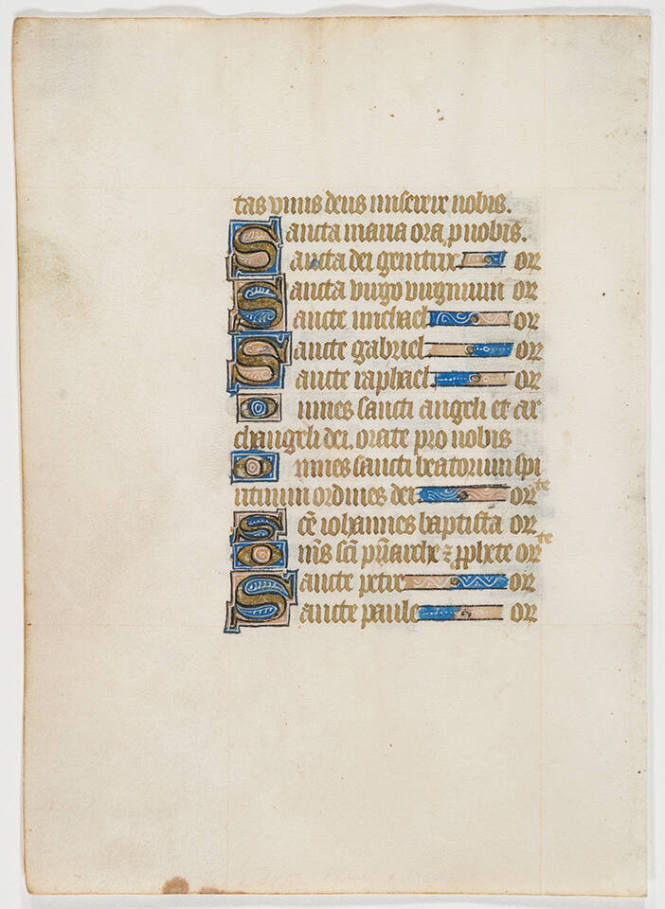 tas unus deus miserere nobis.
Sancta maria ora p nobis.
Sancta dei genitrix or
Sancta virgo virginum or
Sancte michael or
Sancte gabriel or
Sancte raphael or
Omnes sancti angeli et ar
changeli dei. orate pro nobis
Omnes sancti beatorum spi
rituum ordines dei orte
Scē iohannes baptista or
Omīs scī pr̄iarche ⁊ pphete orte
Sancte petre or
Sancte paule or